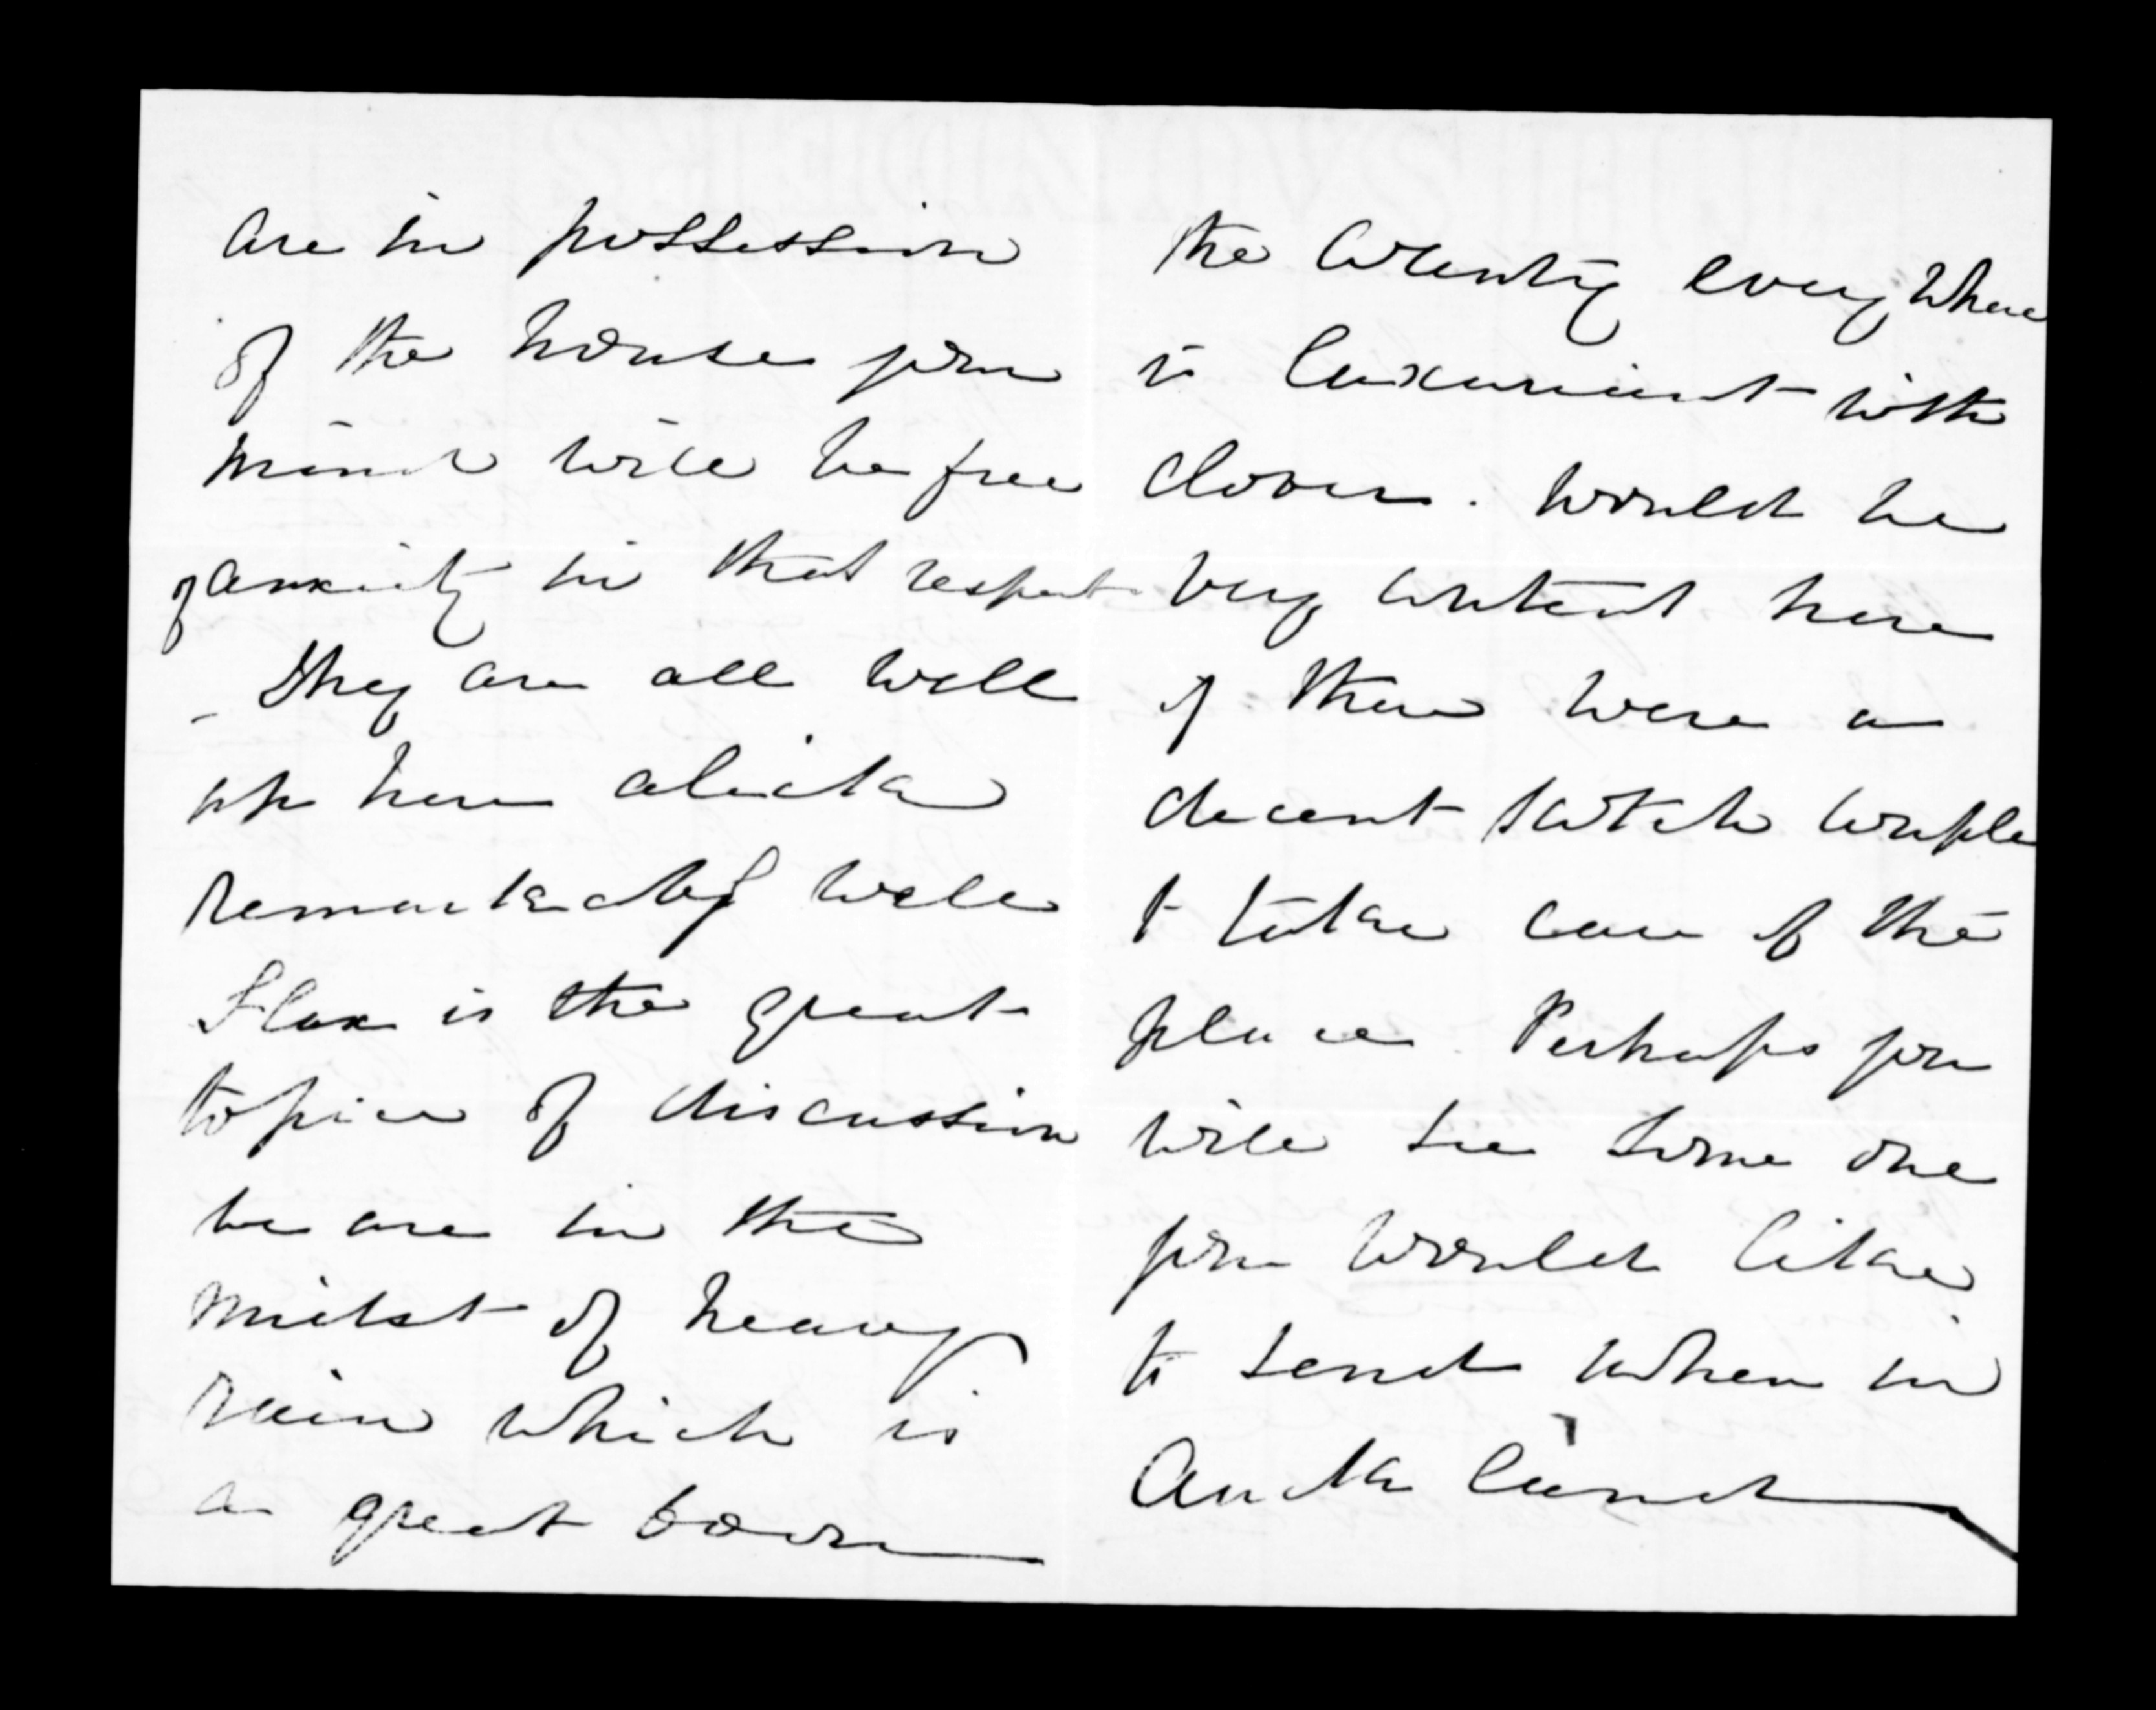 are in possession
of the house your
mind will be free
of anxiety in that respect.
- They are all well
up here alicka
remarkably well
Flax is the great
topic of discussion
we are in the
midst of heavy
rain which is
a great boon
the country everywhere
is luxuriant with
clover. Would be
very content here
if there were a
decent Scotch couple
to take care of the
place. Perhaps you
will see some one
you would like
to send when in
Auckland